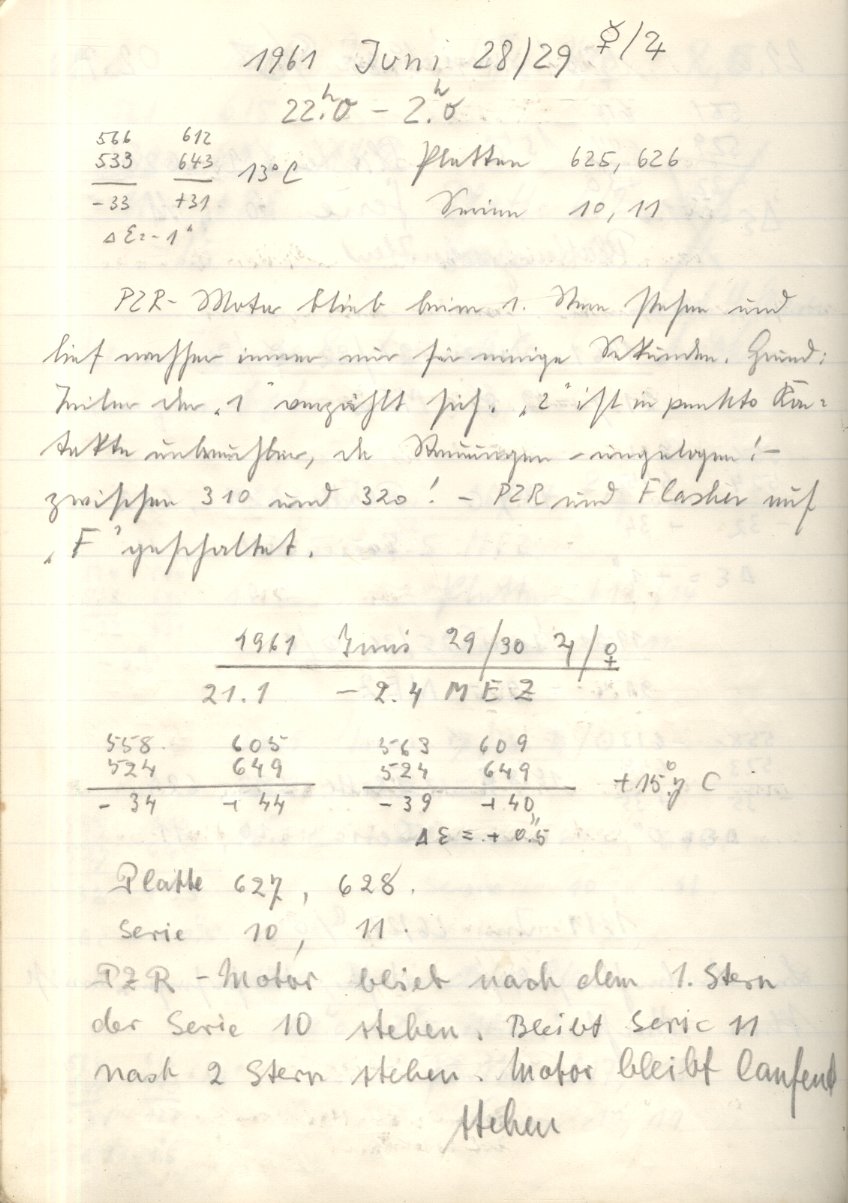 1961 Juni 28/29 ☿/♃
22.ʰ0 – 2.ʰ0
566 612
533 643 13°C Platten 625, 626
-33 +31 Serien 10, 11
Δε = -1"
PZR-Motor blieb beim 1. Stern stehen und
lief nachher immer nur für einige Sekunden. Grund:
Teiler der „1“ verzählt sich. „2“ ist in punkto Kon=
takte unbrauchbar, da Streuungen – ungelogen! –
zwischen 310 und 320! – PZR und Flasher auf
„F“ geschaltet.
1961 Juni 29/30 ♃/♀
21.1 – 2.4 MEZ
558 605 563 609
524 649 524 649 +15.°7 C
-34 +44 -39 +40
Δε = +0."5
Platte 627, 628.
Serie 10, 11.
PZR-Motor blieb nach dem 1. Stern
der Serie 10 stehen. Bleibt Serie 11
nach 2 Stern stehen. Motor bleibt laufend
stehen